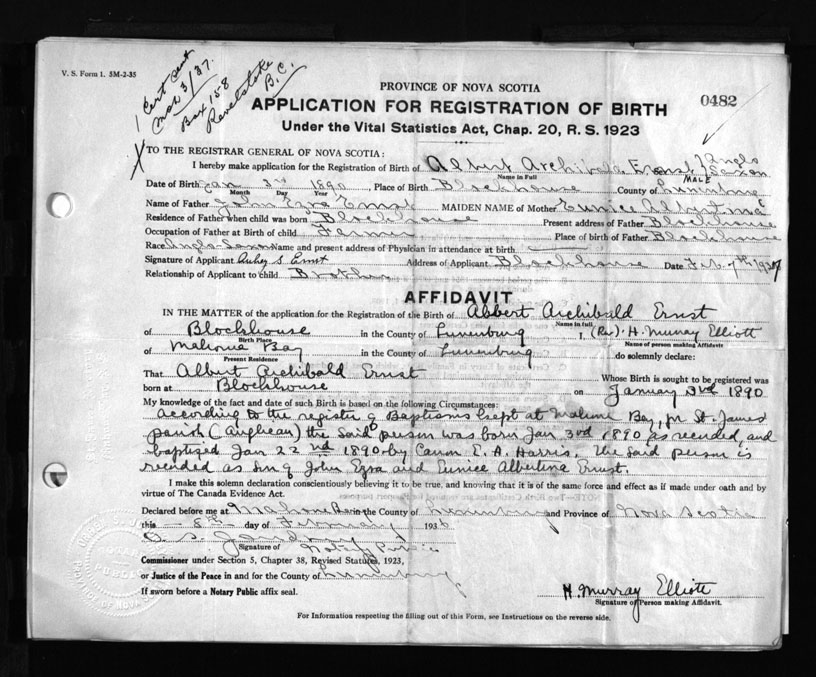 V. S. Form 1. 5M-2-35
1 Cert sent
Mar 3/37.
Box 158
Revelstoke
B.C.
PROVINCE OF NOVA SCOTIA
APPLICATION FOR REGISTRATION OF BIRTH
0482
Under the Vital Statistics Act, Chap. 20, R. S. 1923
X TO THE REGISTRAR GENERAL OF NOVA SCOTIA:
I hereby make application for the Registration of Birth of Albert Archibald Ernst, Anglo Saxon
Name in Full MALE
Date of Birth Jan 3rd 1890 Place of Birth Blockhouse County of Lunenburg
Month Day Year
Name of Father John Ezra Ernst MAIDEN NAME of Mother Eunice Albertina
Residence of Father when child was born Blockhouse Present address of Father Blockhouse
Occupation of Father at Birth of child Farmer Place of birth of Father Blockhouse
Race Anglo-Saxon Name and present address of Physician in attendance at birth
Signature of Applicant S Ernst Address of Applicant Blockhouse Date Feb. 7th 1937
Relationship of Applicant to child Brother
AFFIDAVIT
IN THE MATTER of the application for the Registration of the Birth of Albert Archibald Ernst
Name in full
of Blockhouse in the County of Lunenburg I, (Rev). H. Murray Elliott
Birth Place Name of person making Affidavit
of Mahone Bay in the County of Lunenburg do solemnly declare:
Present Residence
That Albert Archibald Ernst Whose Birth is sought to be registered was
born at Blockhouse on January 3rd 1890
My knowledge of the fact and date of such Birth is based on the following Circumstances:
According to the register of Baptisms kept at Mahone Bay, for St. James
parish (Anglican) the said person was born Jan 3rd 1890 as recorded, and
baptized Jan 22nd 1890 by Canon E. A. Harris. The said person is
recorded as son of John Ezra and Eunice Albertina Ernst.
I make this solemn declaration conscientiously believing it to be true, and knowing that it is of the same force and effect as if made under oath and by
virtue of The Canada Evidence Act.
Declared before me at Mahone Bay in the County of Lunenburg and Province of Nova Scotia
this 8th day of February 193
Signature of Notary Public
Commissioner under Section 5, Chapter 38, Revised Statutes, 1923,
or Justice of the Peace in and for the County of Lunenburg
H. Murray Elliott
If sworn before a Notary Public affix seal.
Signature of Person making Affidavit.
For Information respecting the filling out of this Form, see Instructions on the reverse side.